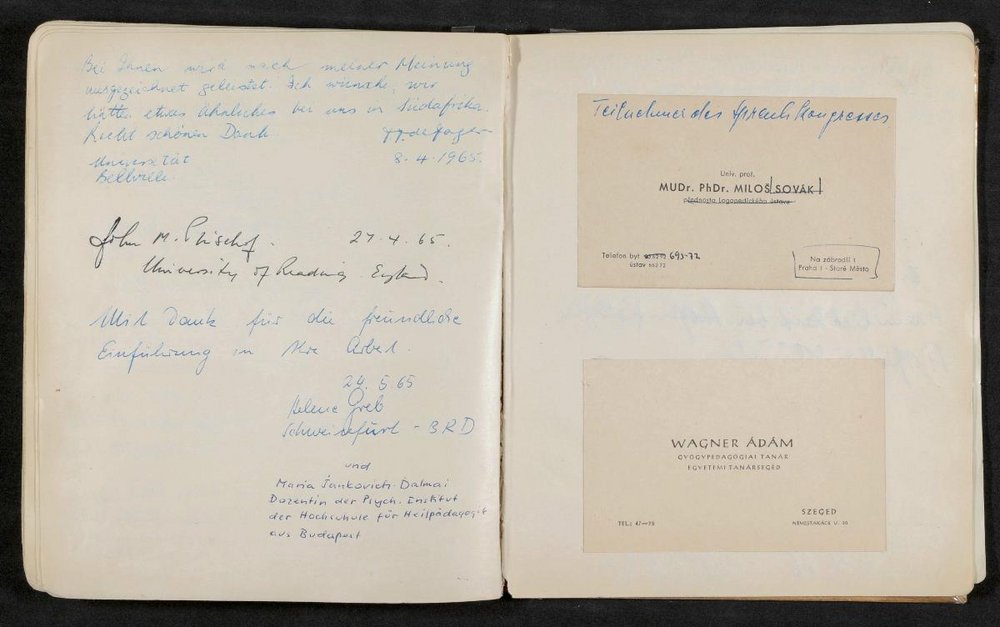 Bei Ihnen wird nach meiner Meinung
ausgezeichnet geleistet. Ich wünsche, wir
hätten etwas Ähnliches bei uns in Südafrika.
Recht schönen Dank.
8.4.1965.
Universität
27.4.65.
John M.
University of Reading. England.
Mit Dank für die freundliche
Einführung in Ihre Arbeit.
24.5.65
Helene Greb
Schweinfurt - BRD
und
Maria Jankovich-Dalmai
Dozentin der Psych. Institut
der Hochschule für Heilpädagogik
aus Budapest
Teilnehmer des Sprach Kongresses
Univ. prof.
MUDr. PhDr. MILOŠ SOVÁK
přednosta Logopedického ústavu
Telefon byt 693-72
ústav
Na zábradlí 1
Praha 1 - Staré Město
WAGNER ÁDÁM
GYÓGYPEDAGÓGIAI TANÁR
EGYETEMI TANÁRSEGÉD
TEL.: 47—79
SZEGED
NEMESTAKÁCS U.